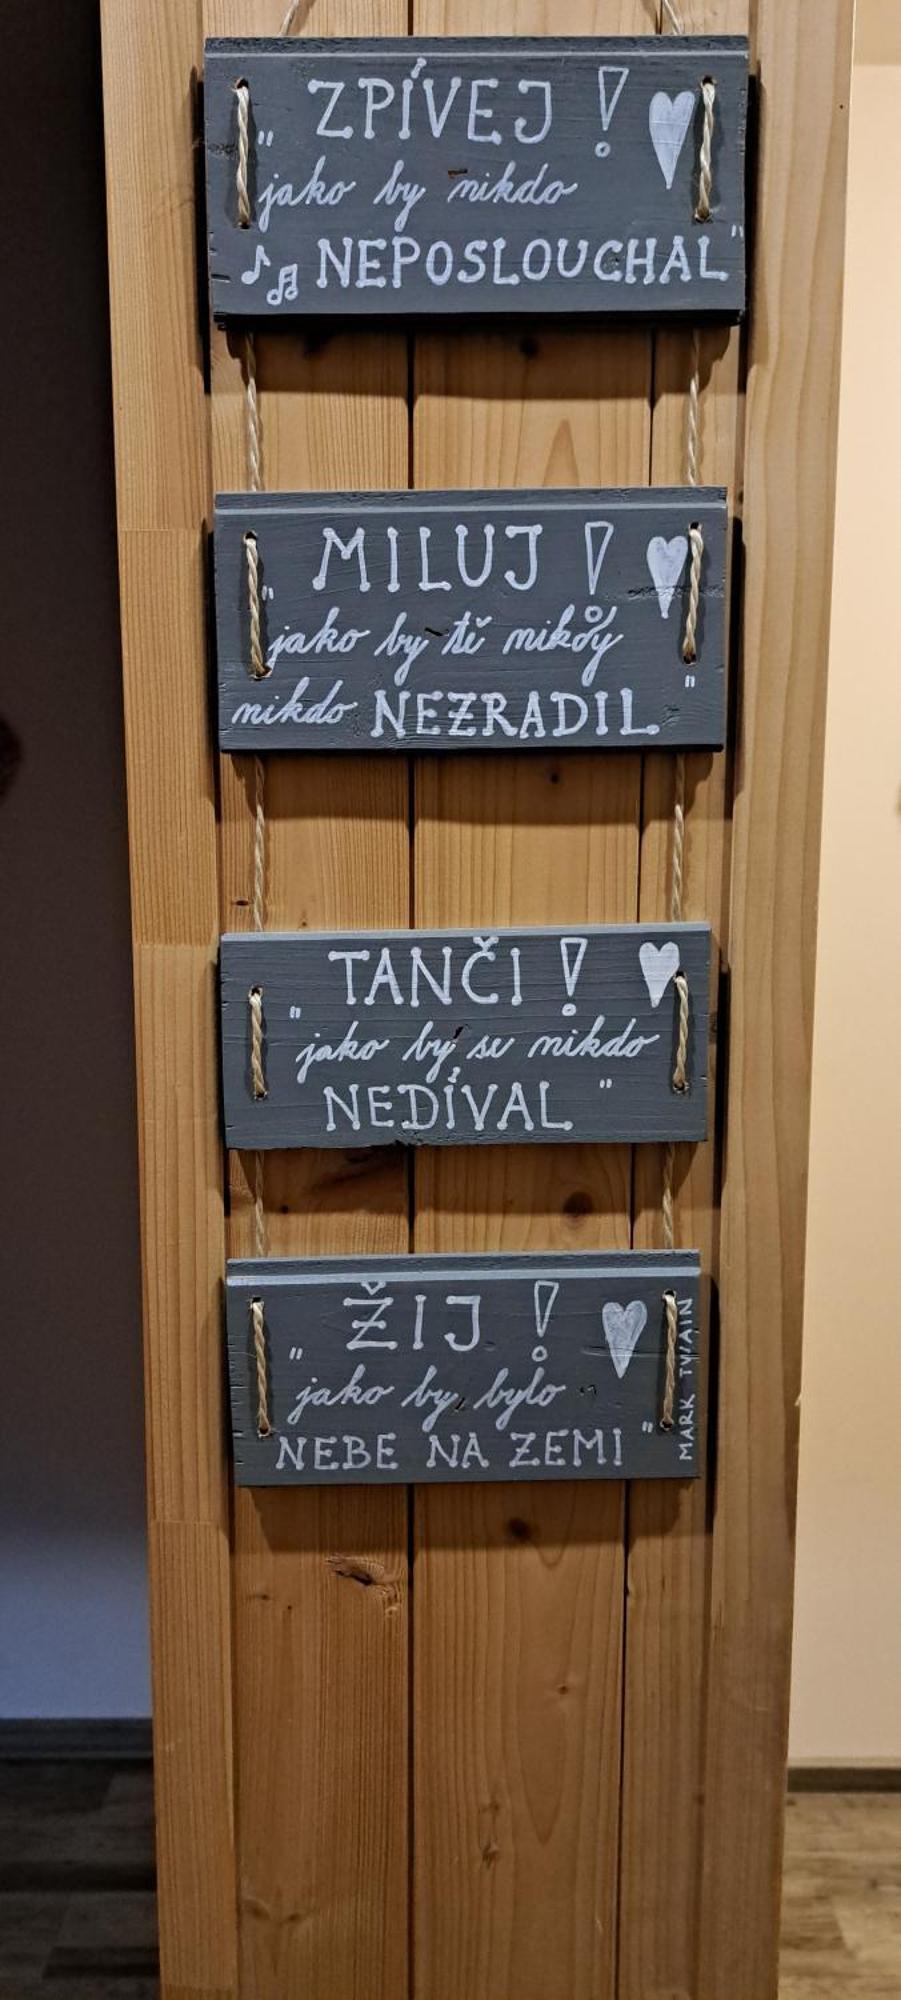 „ ZPÍVEJ !
jako by nikdo
NEPOSLOUCHAL"
„ MILUJ !
jako by tě nikdy
nikdo NEZRADIL "
„ TANČI !
jako by se nikdo
NEDÍVAL "
„ ŽIJ !
jako by bylo
NEBE NA ZEMI "
MARK TWAIN